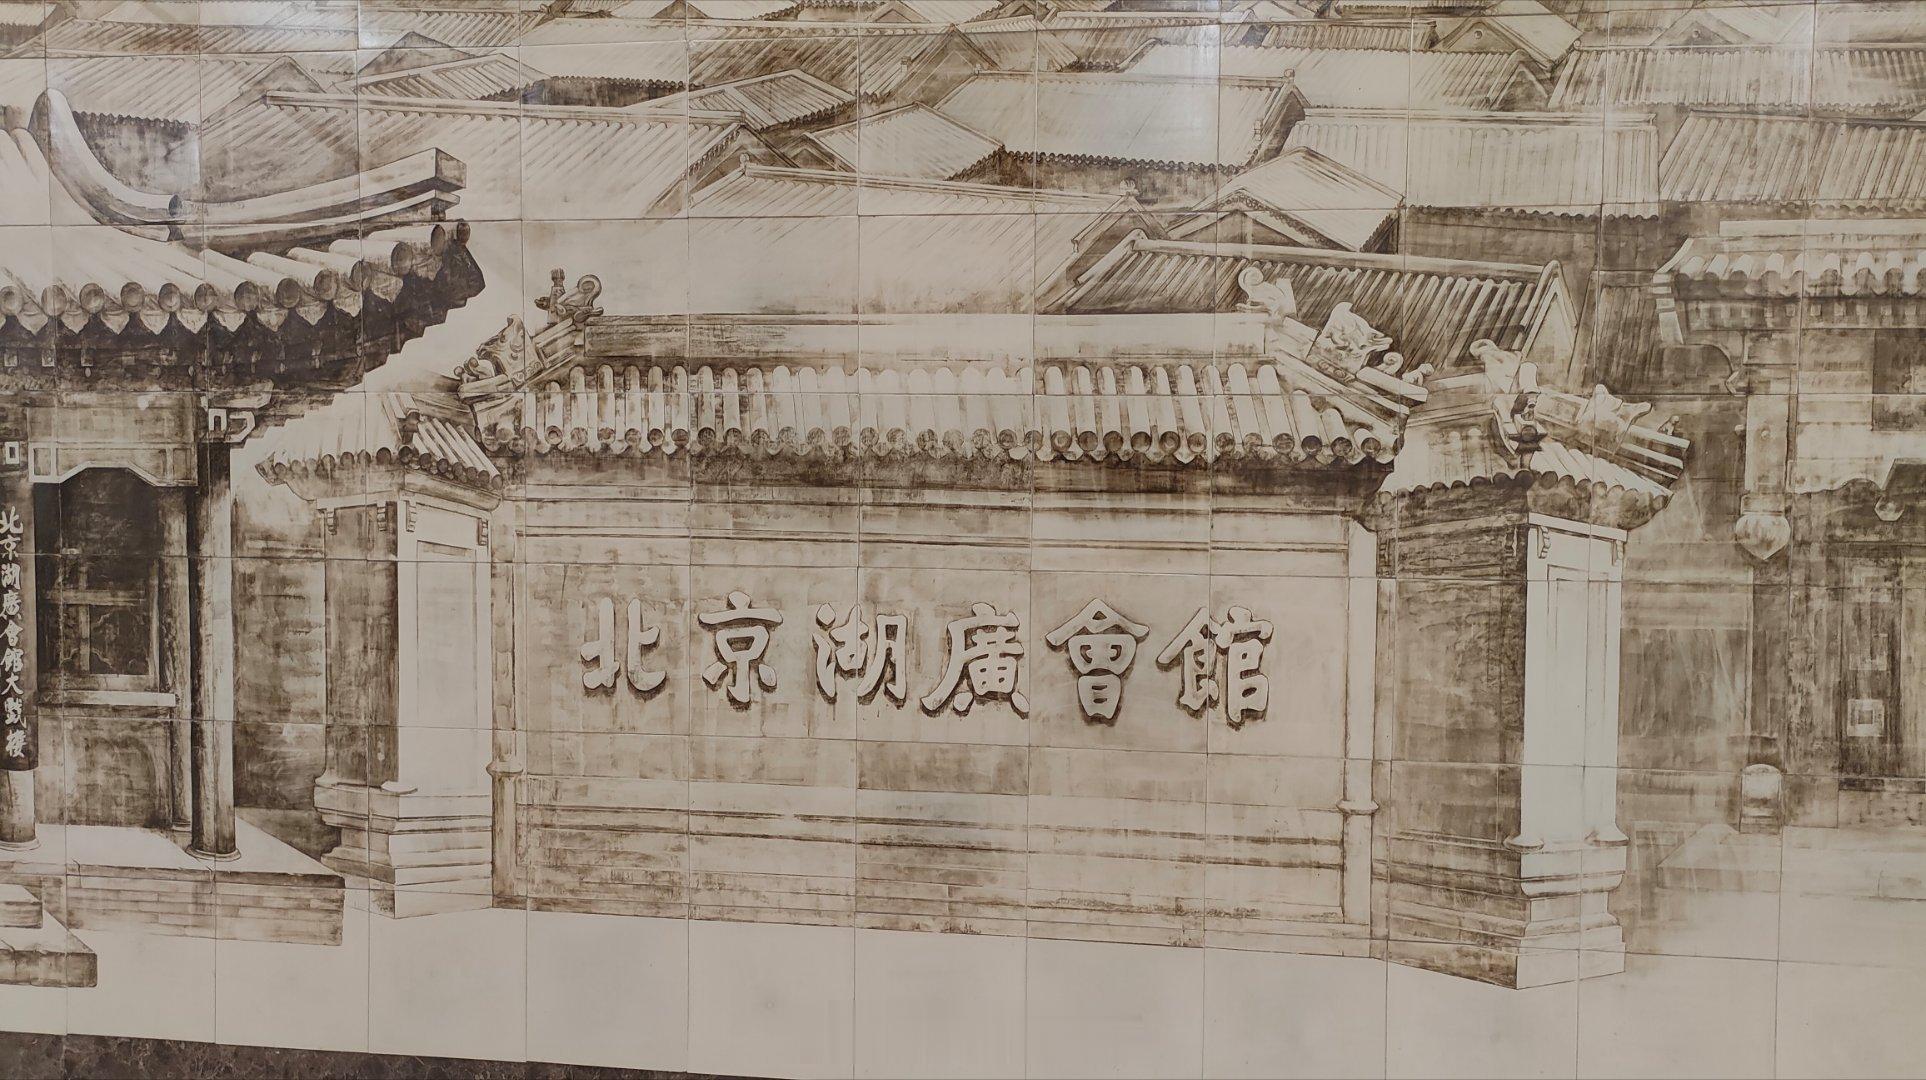 北京湖廣會館
北京湖廣會館大戲樓